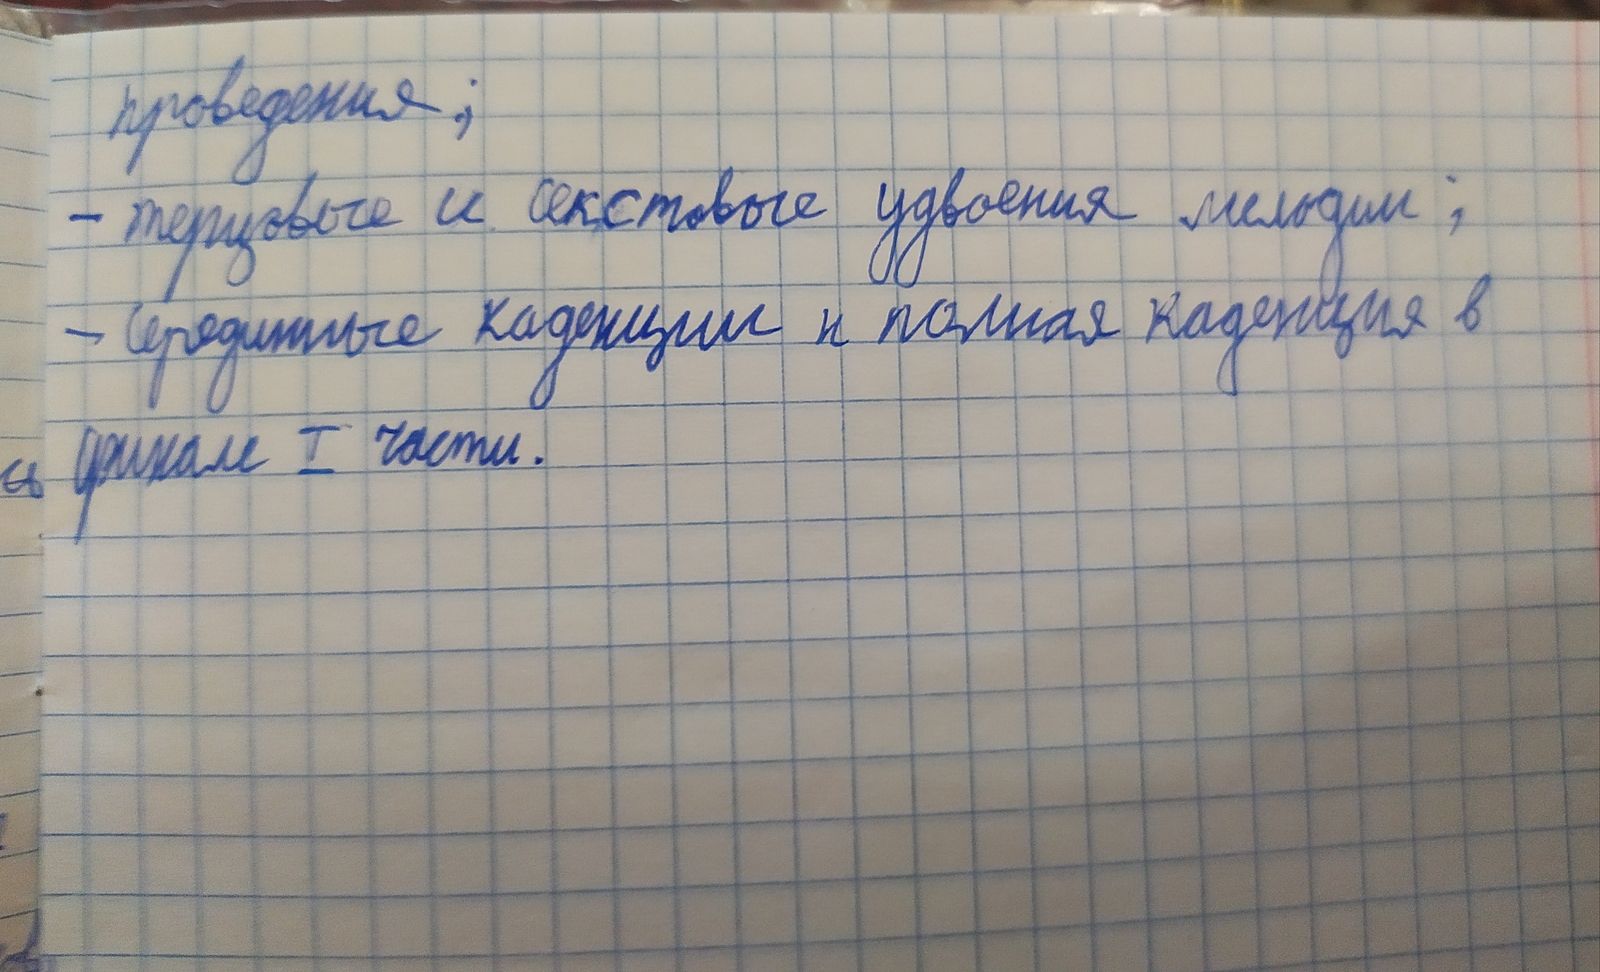 проведения;
- терцовые и секстовые удвоения мелодии;
- серединные каденции и полная каденция в
финале I части.